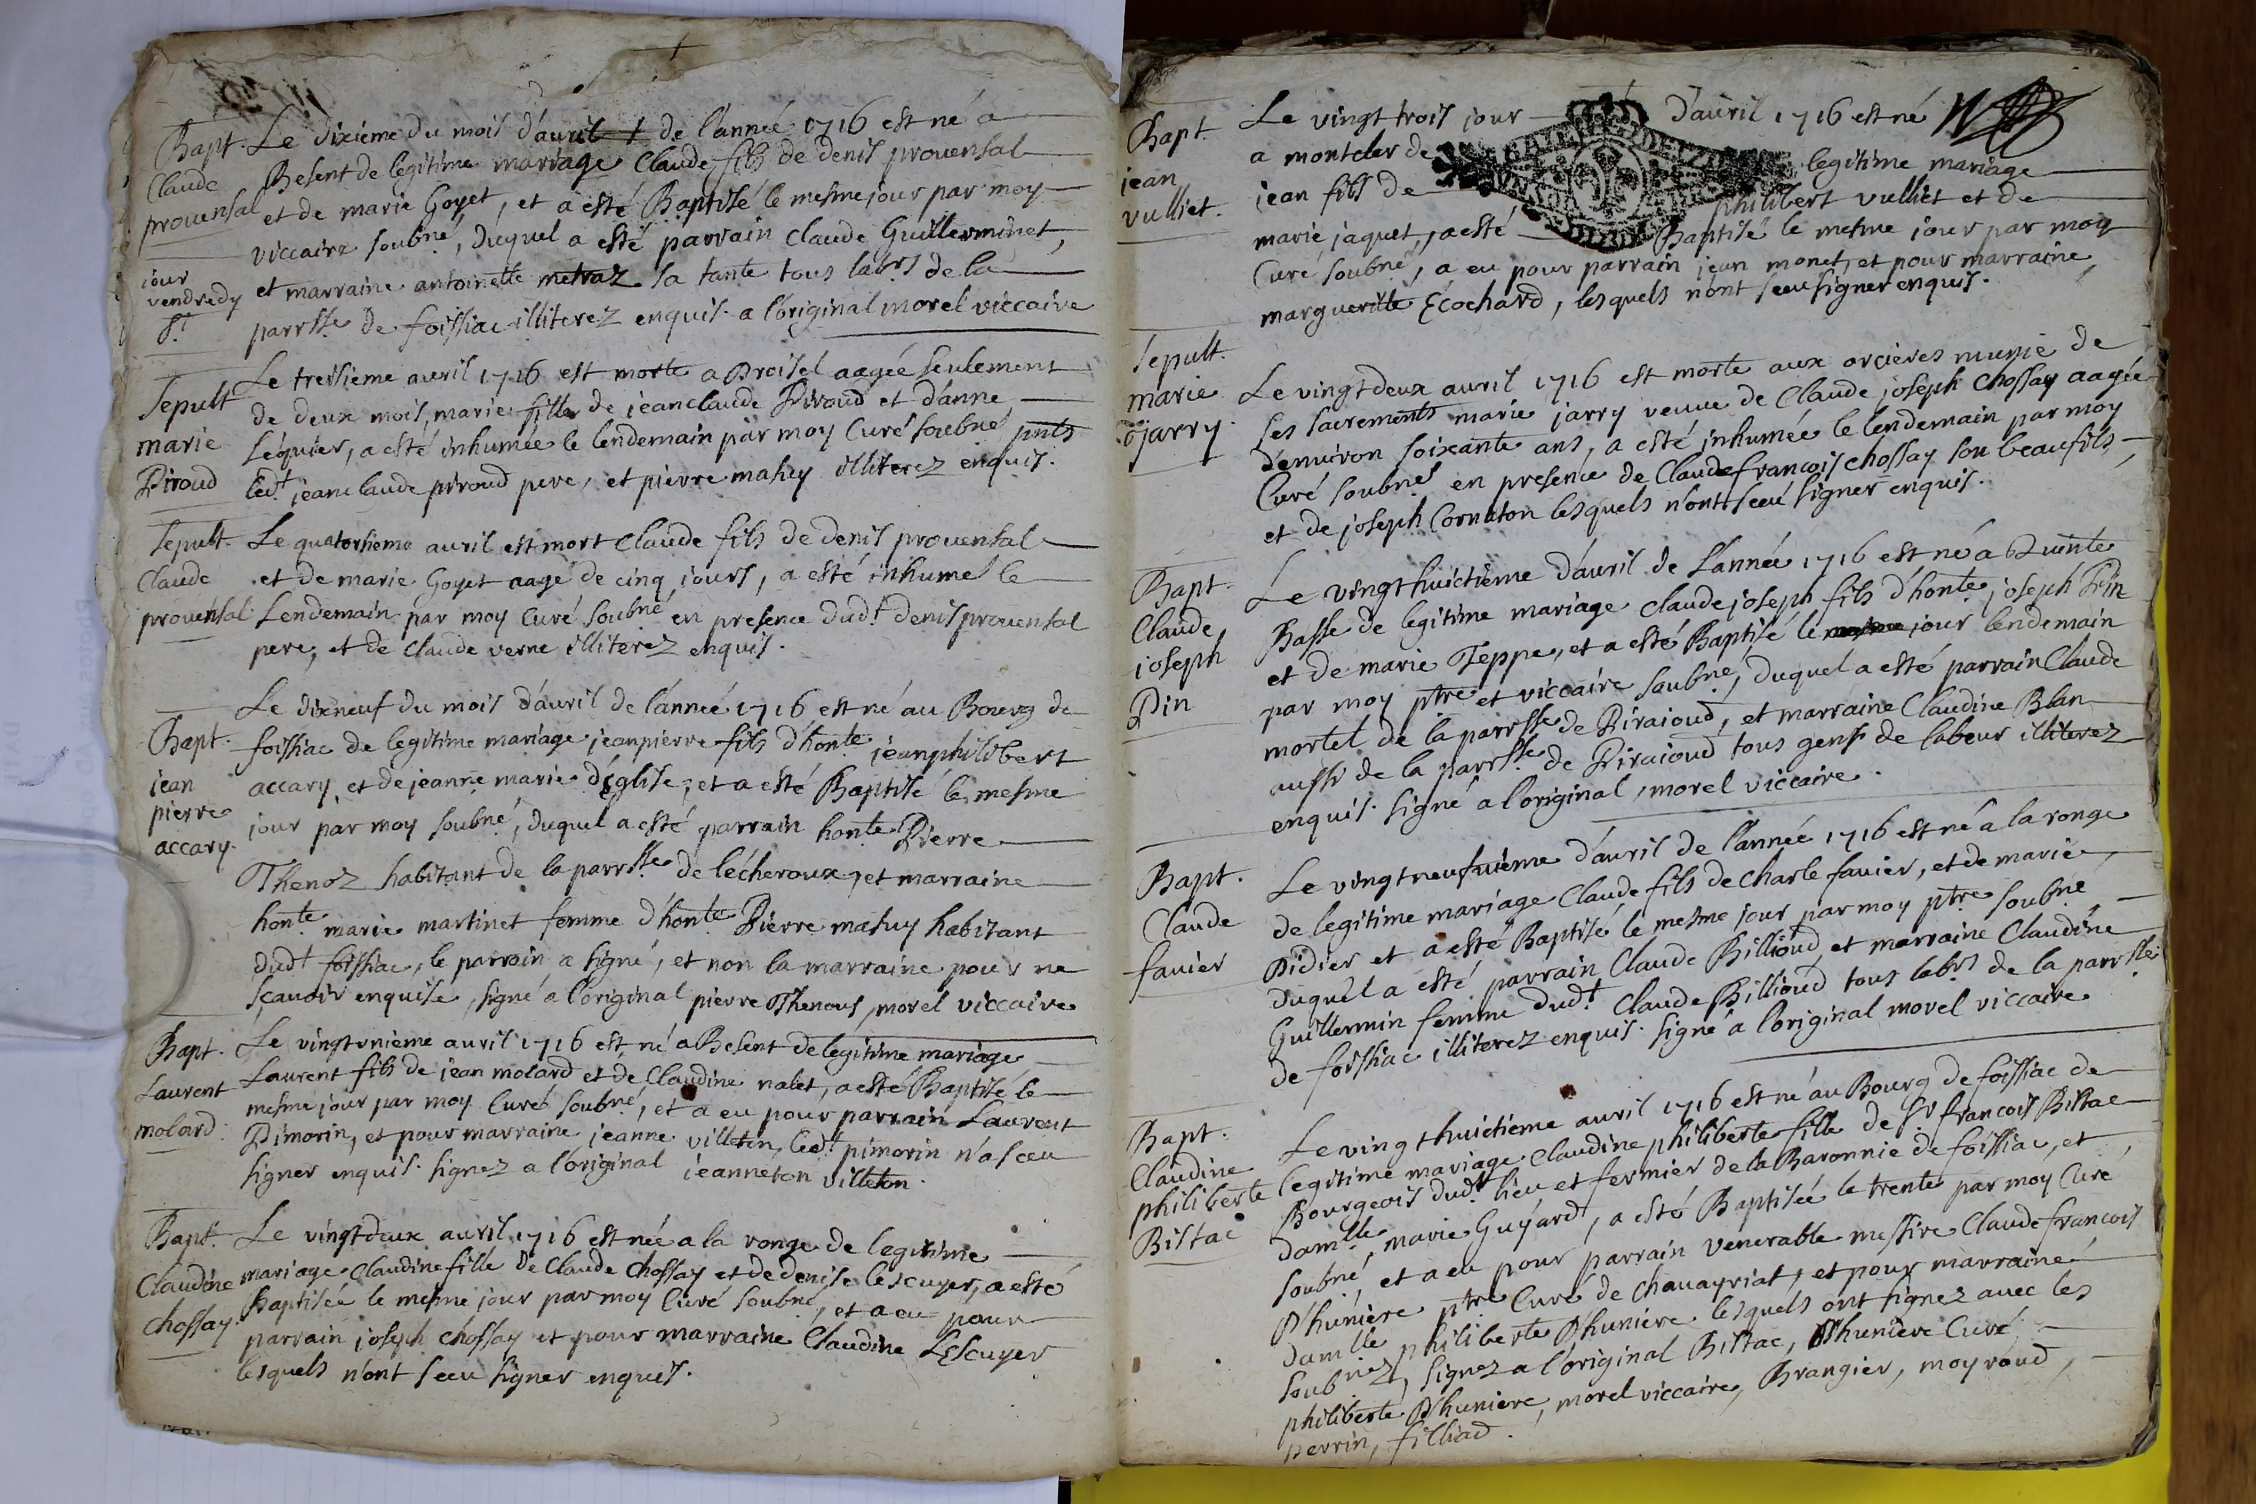 Bapt.
Claude
prouensal
jour
vendredy
St.
Le dixieme du mois d'auril de l'année 1716 est né a
Besent de legitime mariage Claude fils de denis prouensal
et de marie Goyet, et a esté Baptisé le mesme jour par moy
viccaire soubné, duquel a esté parrain Claude Guillerminet,
et marraine antoinette metraz sa tante tous labrs de la
parrsse de foissiac illiterez enquis. a l'original morel viccaire
Sepult
marie
Piroud
Le treisieme auril 1716 est morte a Broisel aagée seulement
de deux mois, marie fille de jeanclaude Piroud et d'anne
Léquier, a esté inhumée le lendemain par moy Curé soubné pnts
ledt jeanclaude piroud pere, et pierre mahuy illiterez enquis.
Sepult.
Claude
prouensal
Le quatorsieme auril est mort Claude fils de denis prouensal
et de marie Goyet aagé de cinq jours, a esté inhumé le
Lendemain par moy Curé soubné en presence dudt denis prouensal
pere, et de Claude verne illiterez enquis.
Bapt.
jean
pierre
accary.
Le dixneuf du mois d'auril de l'année 1716 est né au Bourg de
foissiac de legitime mariage jeanpierre fils d'honte jeanphilibert
accary, et de jeanne marie d'Eglise, et a esté Baptisé le mesme
jour par moy soubné, duquel a esté parrain honte Pierre
Thenoz habitant de la parrsse de lécheroux, et marraine
honte marie martinet femme d'honte Pierre mahuy habitant
dudt foissiac, le parrain a signé, et non la marraine pour ne
sçauoir enquise, signé a l'original pierre Thenous, morel viccaire
Bapt.
Laurent
molard.
Le vingtunieme auril 1716 est né a Besent de legitime mariage
Laurent fils de jean molard et de Claudine nalet, a esté Baptisé le
mesme jour par moy Curé soubné, et a eu pour parrain Laurent
Pimorin, et pour marraine jeanne villeton, ledt pimorin n'a sceu
signer enquis. signez a l'original jeanneton villeton.
Bapt.
Claudine
chossay.
Le vingtdeux auril 1716 est née a la ronge de legitime
mariage Claudine fille de Claude chossay et de denise lescuyer, a esté
Baptisée le mesme jour par moy Curé soubné, et a eu pour
parrain joseph chossay et pour marraine Claudine LEscuyer
lesquels n'ont sceu signer enquis.
Bapt
jean
vulliet.
Le vingt trois jour d'auril 1716 est né
a montcler de legitime mariage
jean fils de philibert vulliet et de
marie jaquet, a esté Baptisé le mesme jour par moy
Curé soubné, a eu pour parrain jean monet, et pour marraine
marguerite Ecochard, lesquels n'ont sceu signer enquis.
Sepult.
marie
jarry.
Le vingtdeux auril 1716 est morte aux orcières munie de
ses sacrements marie jarry veuue de Claude joseph Chossay aagée
d'enuiron soixante ans, a esté inhumée le lendemain par moy
Curé soubné en presence de Claudefrancois chossay son beaufils
et de joseph Cornaton lesquels n'ont sceu signer enquis.
Bapt.
Claude
joseph
Pin
Le vingthuictieme d'auril de l'année 1716 est né a
Basse de legitime mariage Claudejoseph fils d'honte joseph Pin
et de marie Teppe, et a esté Baptisé le jour lendemain
par moy ptre et viccaire soubné, duquel a esté parrain Claude
mortel de la parrsse de Piraioud, et marraine Claudine Blan
aussi de la parrsse de Piraioud tous gens de labeur illiterez
enquis. signé a l'original, morel viccaire.
Bapt.
Claude
fauier
Le vingtneufuieme d'auril de l'année 1716 est né a la ronge
de legitime mariage Claude fils de Charle fauier, et de marie
Didier et a esté Baptisé le mesme jour par moy ptre soubné
duquel a esté parrain Claude Billioud, et marraine Claudine
Guillermin femme dudt Claude Billioud tous labrs de la parrsse
de foissiac illiterez enquis. signé a l'original morel viccaire
Bapt.
Claudine
philiberte
Bistac
Le vingthuictieme auril 1716 est né au Bourg de foissiac de
legitime mariage Claudine philiberte fille de Sr francois Bistac
Bourgeois dudt lieu et fermier de la Baronnie de foissiac, et
damlle marie Guyard, a esté Baptisée le trente par moy Curé
soubné, et a eu pour parrain venerable messire Claudefrancois
D'huniere ptre Curé de chauayriat, et pour marraine
damlle philiberte D'huniere lesquels ont signez auec les
soubnez, signez a l'original Bistac, D'huniere Curé
philiberte D'huniere, morel viccaire, Brangier, moyroud,
perrin, filliad.